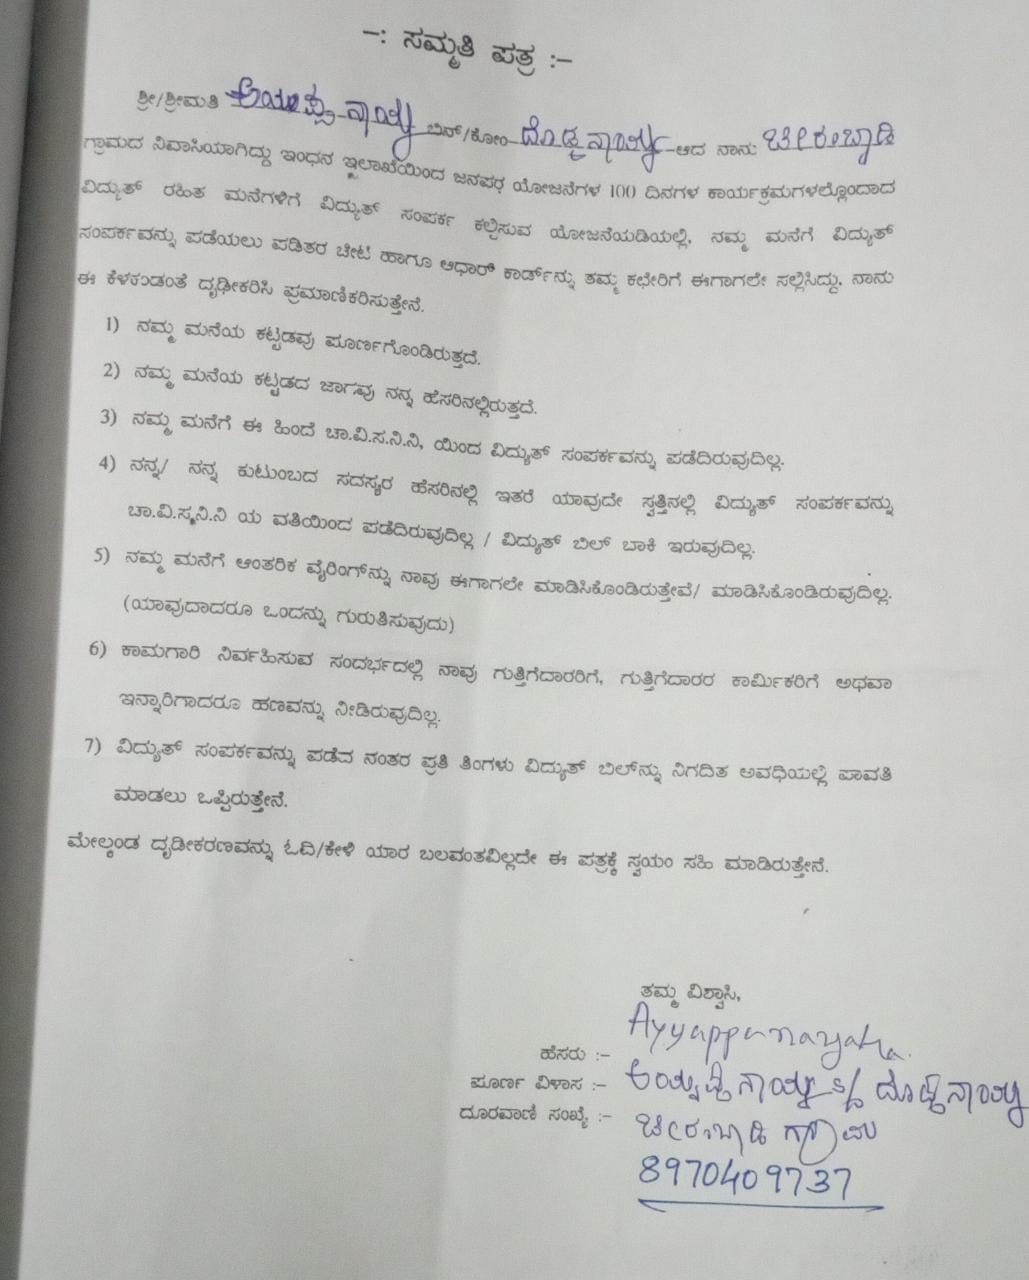 -: ಸಮ್ಮತಿ ಪತ್ರ :-
ಶ್ರೀ/ಶ್ರೀಮತಿ ಅಯ್ಯಪ್ಪ ನಾಯ್ಕ ಬಿನ್/ಕೋಂ ದೊಡ್ಡನಾಯ್ಕ ಆದ ನಾನು ಚೀರಂಬಾಡಿ
ಗ್ರಾಮದ ನಿವಾಸಿಯಾಗಿದ್ದು ಇಂಧನ ಇಲಾಖೆಯಿಂದ ಜನಪರ ಯೋಜನೆಗಳ 100 ದಿನಗಳ ಕಾರ್ಯಕ್ರಮಗಳಲ್ಲೊಂದಾದ
ವಿದ್ಯುತ್ ರಹಿತ ಮನೆಗಳಿಗೆ ವಿದ್ಯುತ್ ಸಂಪರ್ಕ ಕಲ್ಪಿಸುವ ಯೋಜನೆಯಡಿಯಲ್ಲಿ, ನಮ್ಮ ಮನೆಗೆ ವಿದ್ಯುತ್
ಸಂಪರ್ಕವನ್ನು ಪಡೆಯಲು ಪಡಿತರ ಚೀಟಿ ಹಾಗೂ ಆಧಾರ್ ಕಾರ್ಡ್‌ನ್ನು ತಮ್ಮ ಕಛೇರಿಗೆ ಈಗಾಗಲೇ ಸಲ್ಲಿಸಿದ್ದು, ನಾನು
ಈ ಕೆಳಕಂಡಂತೆ ದೃಢೀಕರಿಸಿ ಪ್ರಮಾಣಿಕರಿಸುತ್ತೇನೆ.
1) ನಮ್ಮ ಮನೆಯ ಕಟ್ಟಡವು ಪೂರ್ಣಗೊಂಡಿರುತ್ತದೆ.
2) ನಮ್ಮ ಮನೆಯ ಕಟ್ಟಡದ ಜಾಗವು ನನ್ನ ಹೆಸರಿನಲ್ಲಿರುತ್ತದೆ.
3) ನಮ್ಮ ಮನೆಗೆ ಈ ಹಿಂದೆ ಚಾ.ವಿ.ಸ.ನಿ.ನಿ, ಯಿಂದ ವಿದ್ಯುತ್ ಸಂಪರ್ಕವನ್ನು ಪಡೆದಿರುವುದಿಲ್ಲ.
4) ನನ್ನ/ ನನ್ನ ಕುಟುಂಬದ ಸದಸ್ಯರ ಹೆಸರಿನಲ್ಲಿ ಇತರೆ ಯಾವುದೇ ಸ್ವತ್ತಿನಲ್ಲಿ ವಿದ್ಯುತ್ ಸಂಪರ್ಕವನ್ನು
ಚಾ.ವಿ.ಸ.ನಿ.ನಿ ಯ ವತಿಯಿಂದ ಪಡೆದಿರುವುದಿಲ್ಲ / ವಿದ್ಯುತ್ ಬಿಲ್ ಬಾಕಿ ಇರುವುದಿಲ್ಲ.
5) ನಮ್ಮ ಮನೆಗೆ ಆಂತರಿಕ ವೈರಿಂಗ್‌ನ್ನು ನಾವು ಈಗಾಗಲೇ ಮಾಡಿಸಿಕೊಂಡಿರುತ್ತೇವೆ/ ಮಾಡಿಸಿಕೊಂಡಿರುವುದಿಲ್ಲ.
(ಯಾವುದಾದರೂ ಒಂದನ್ನು ಗುರುತಿಸುವುದು)
6) ಕಾಮಗಾರಿ ನಿರ್ವಹಿಸುವ ಸಂದರ್ಭದಲ್ಲಿ ನಾವು ಗುತ್ತಿಗೆದಾರರಿಗೆ, ಗುತ್ತಿಗೆದಾರರ ಕಾರ್ಮಿಕರಿಗೆ ಅಥವಾ
ಇನ್ನಾರಿಗಾದರೂ ಹಣವನ್ನು ನೀಡಿರುವುದಿಲ್ಲ.
7) ವಿದ್ಯುತ್ ಸಂಪರ್ಕವನ್ನು ಪಡೆದ ನಂತರ ಪ್ರತಿ ತಿಂಗಳು ವಿದ್ಯುತ್ ಬಿಲ್‌ನ್ನು ನಿಗದಿತ ಅವಧಿಯಲ್ಲಿ ಪಾವತಿ
ಮಾಡಲು ಒಪ್ಪಿರುತ್ತೇನೆ.
ಮೇಲ್ಕಂಡ ದೃಢೀಕರಣವನ್ನು ಓದಿ/ಕೇಳಿ ಯಾರ ಬಲವಂತವಿಲ್ಲದೇ ಈ ಪತ್ರಕ್ಕೆ ಸ್ವಯಂ ಸಹಿ ಮಾಡಿರುತ್ತೇನೆ.
ತಮ್ಮ ವಿಶ್ವಾಸಿ,
Ayyappanayaka.
ಹೆಸರು :-
ಪೂರ್ಣ ವಿಳಾಸ :- ಅಯ್ಯಪ್ಪನಾಯ್ಕ S/o ದೊಡ್ಡನಾಯ್ಕ
ದೂರವಾಣಿ ಸಂಖ್ಯೆ :- ಚೀರಂಬಾಡಿ ಗ್ರಾಮ
8970409737